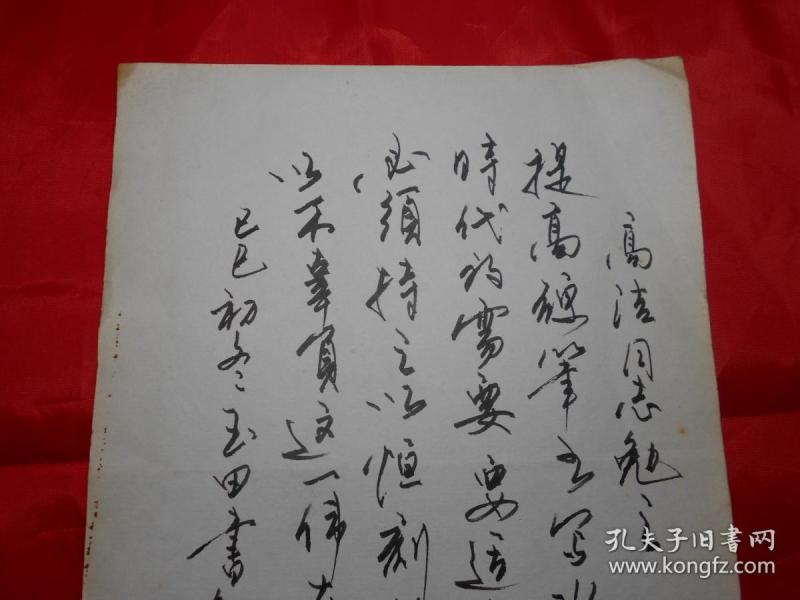 高洁同志勉之
提高硬笔书写水
時代的需要要适
必須持之以恒刻
以不辜負这一伟大
己巳初冬玉田書
孔夫子旧书网
www.kongfz.com